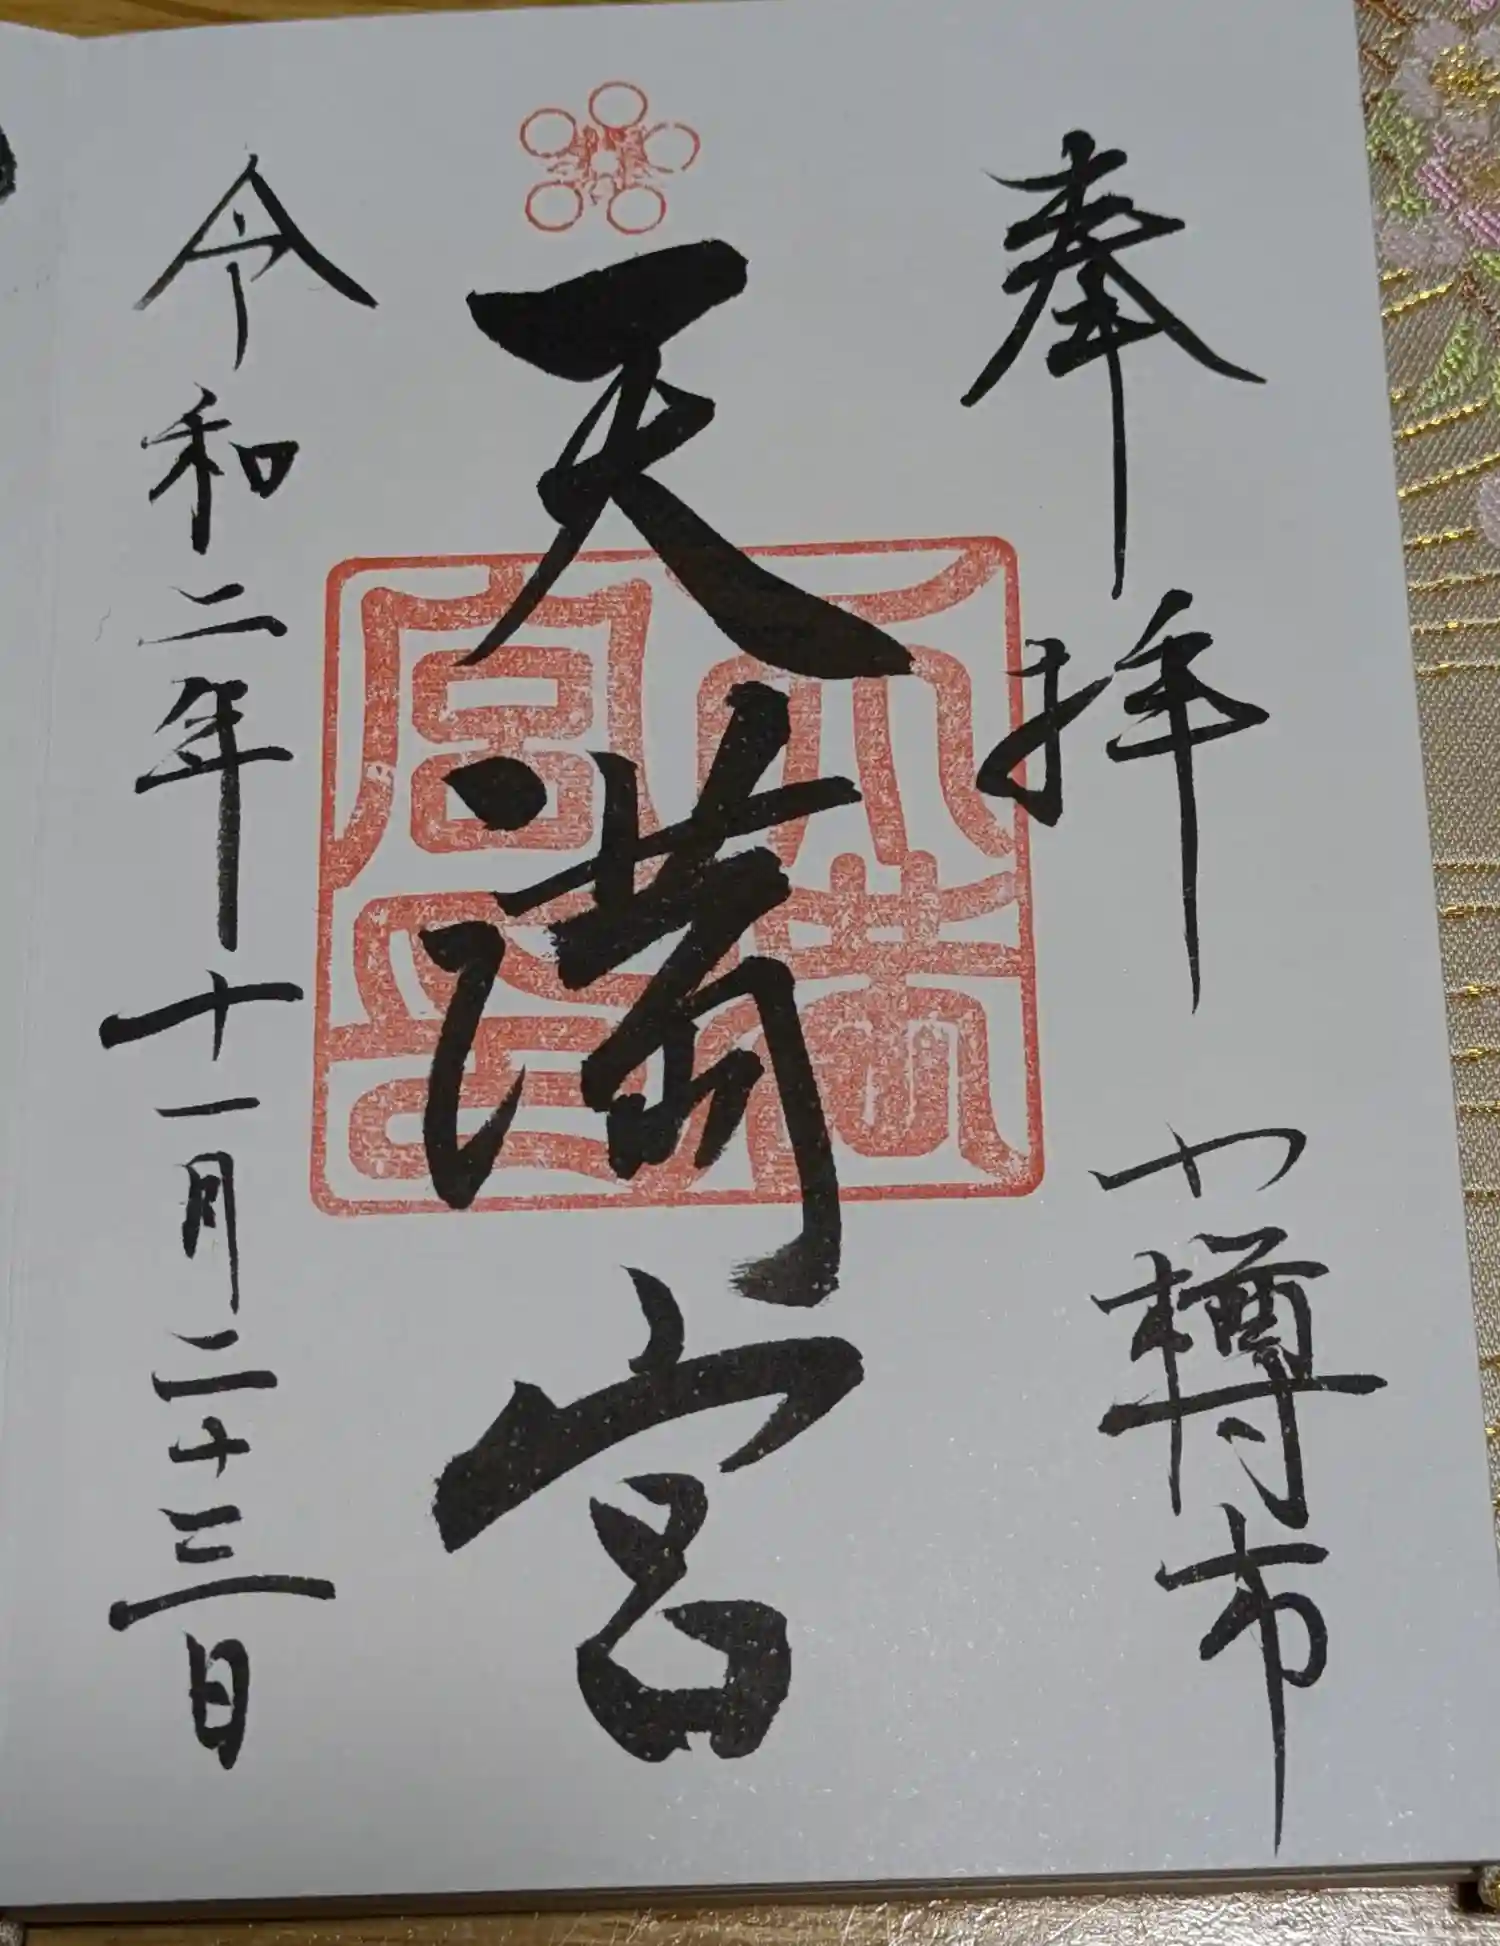 奉拝 小樽市
天満宮
天満宮印
令和二年十一月二十三日